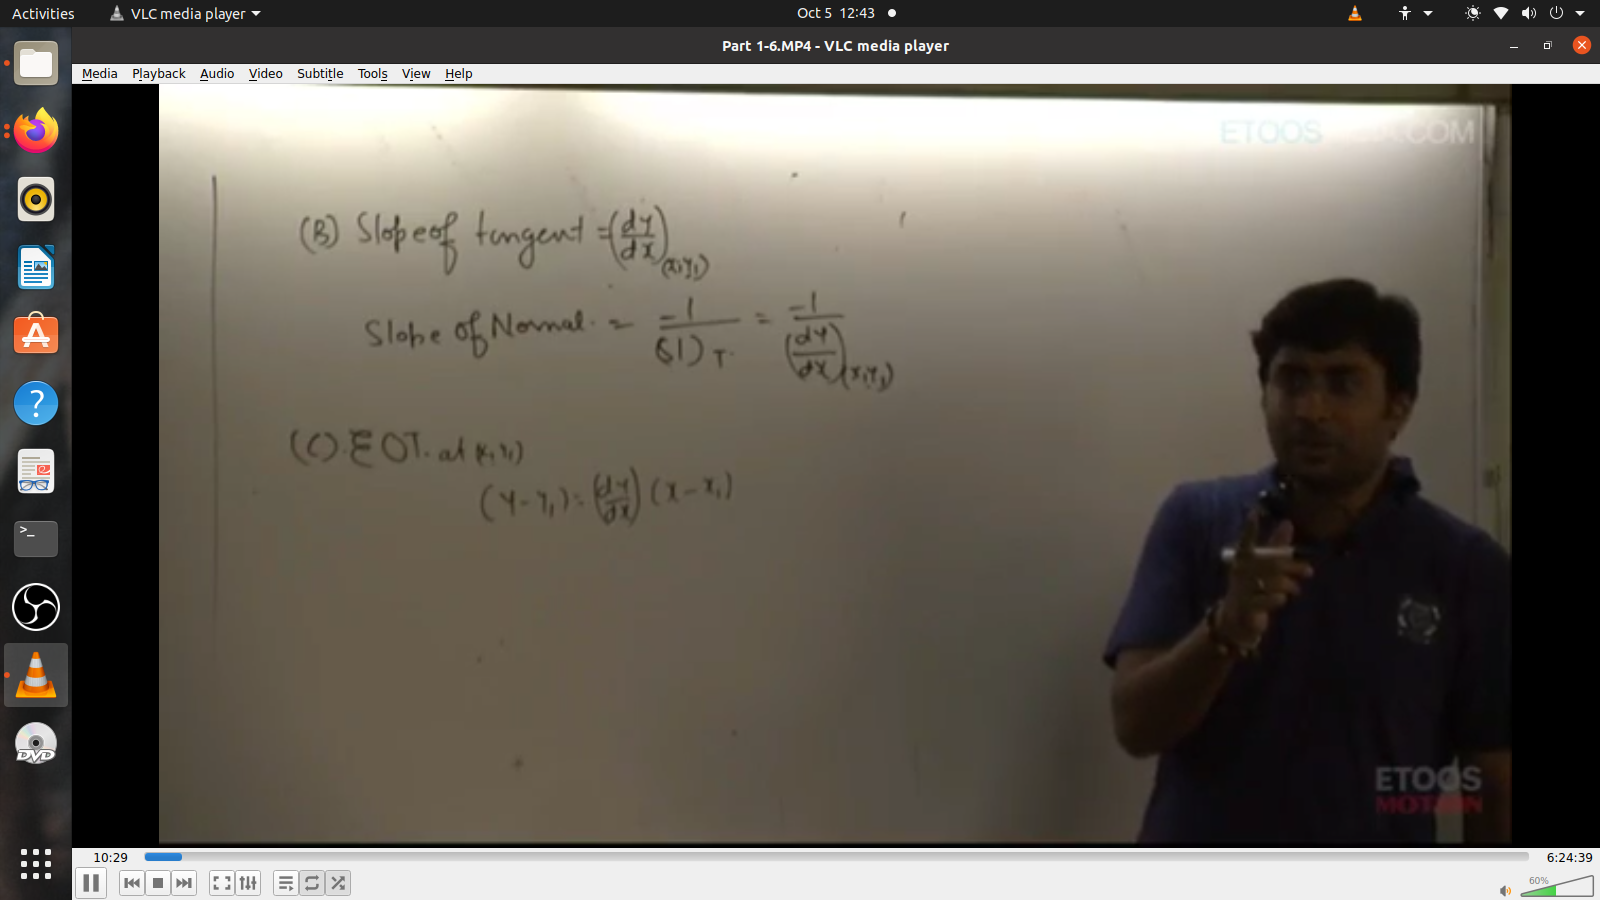 Activities VLC media player Oct 5 12:43
Part 1-6.MP4 - VLC media player
Media Playback Audio Video Subtitle Tools View Help
ETOOS .COM
(B) Slope of tangent = (dy/dx)(x₁,y₁)
Slope of Normal = -1/(Sl)T. = -1/(dy/dx)(x₁,y₁)
(C) EOT. at (x₁,y₁)
(y-y₁) = (dy/dx) (x-x₁)
ETOOS
MOTION
DVD
10:29 6:24:39
60%